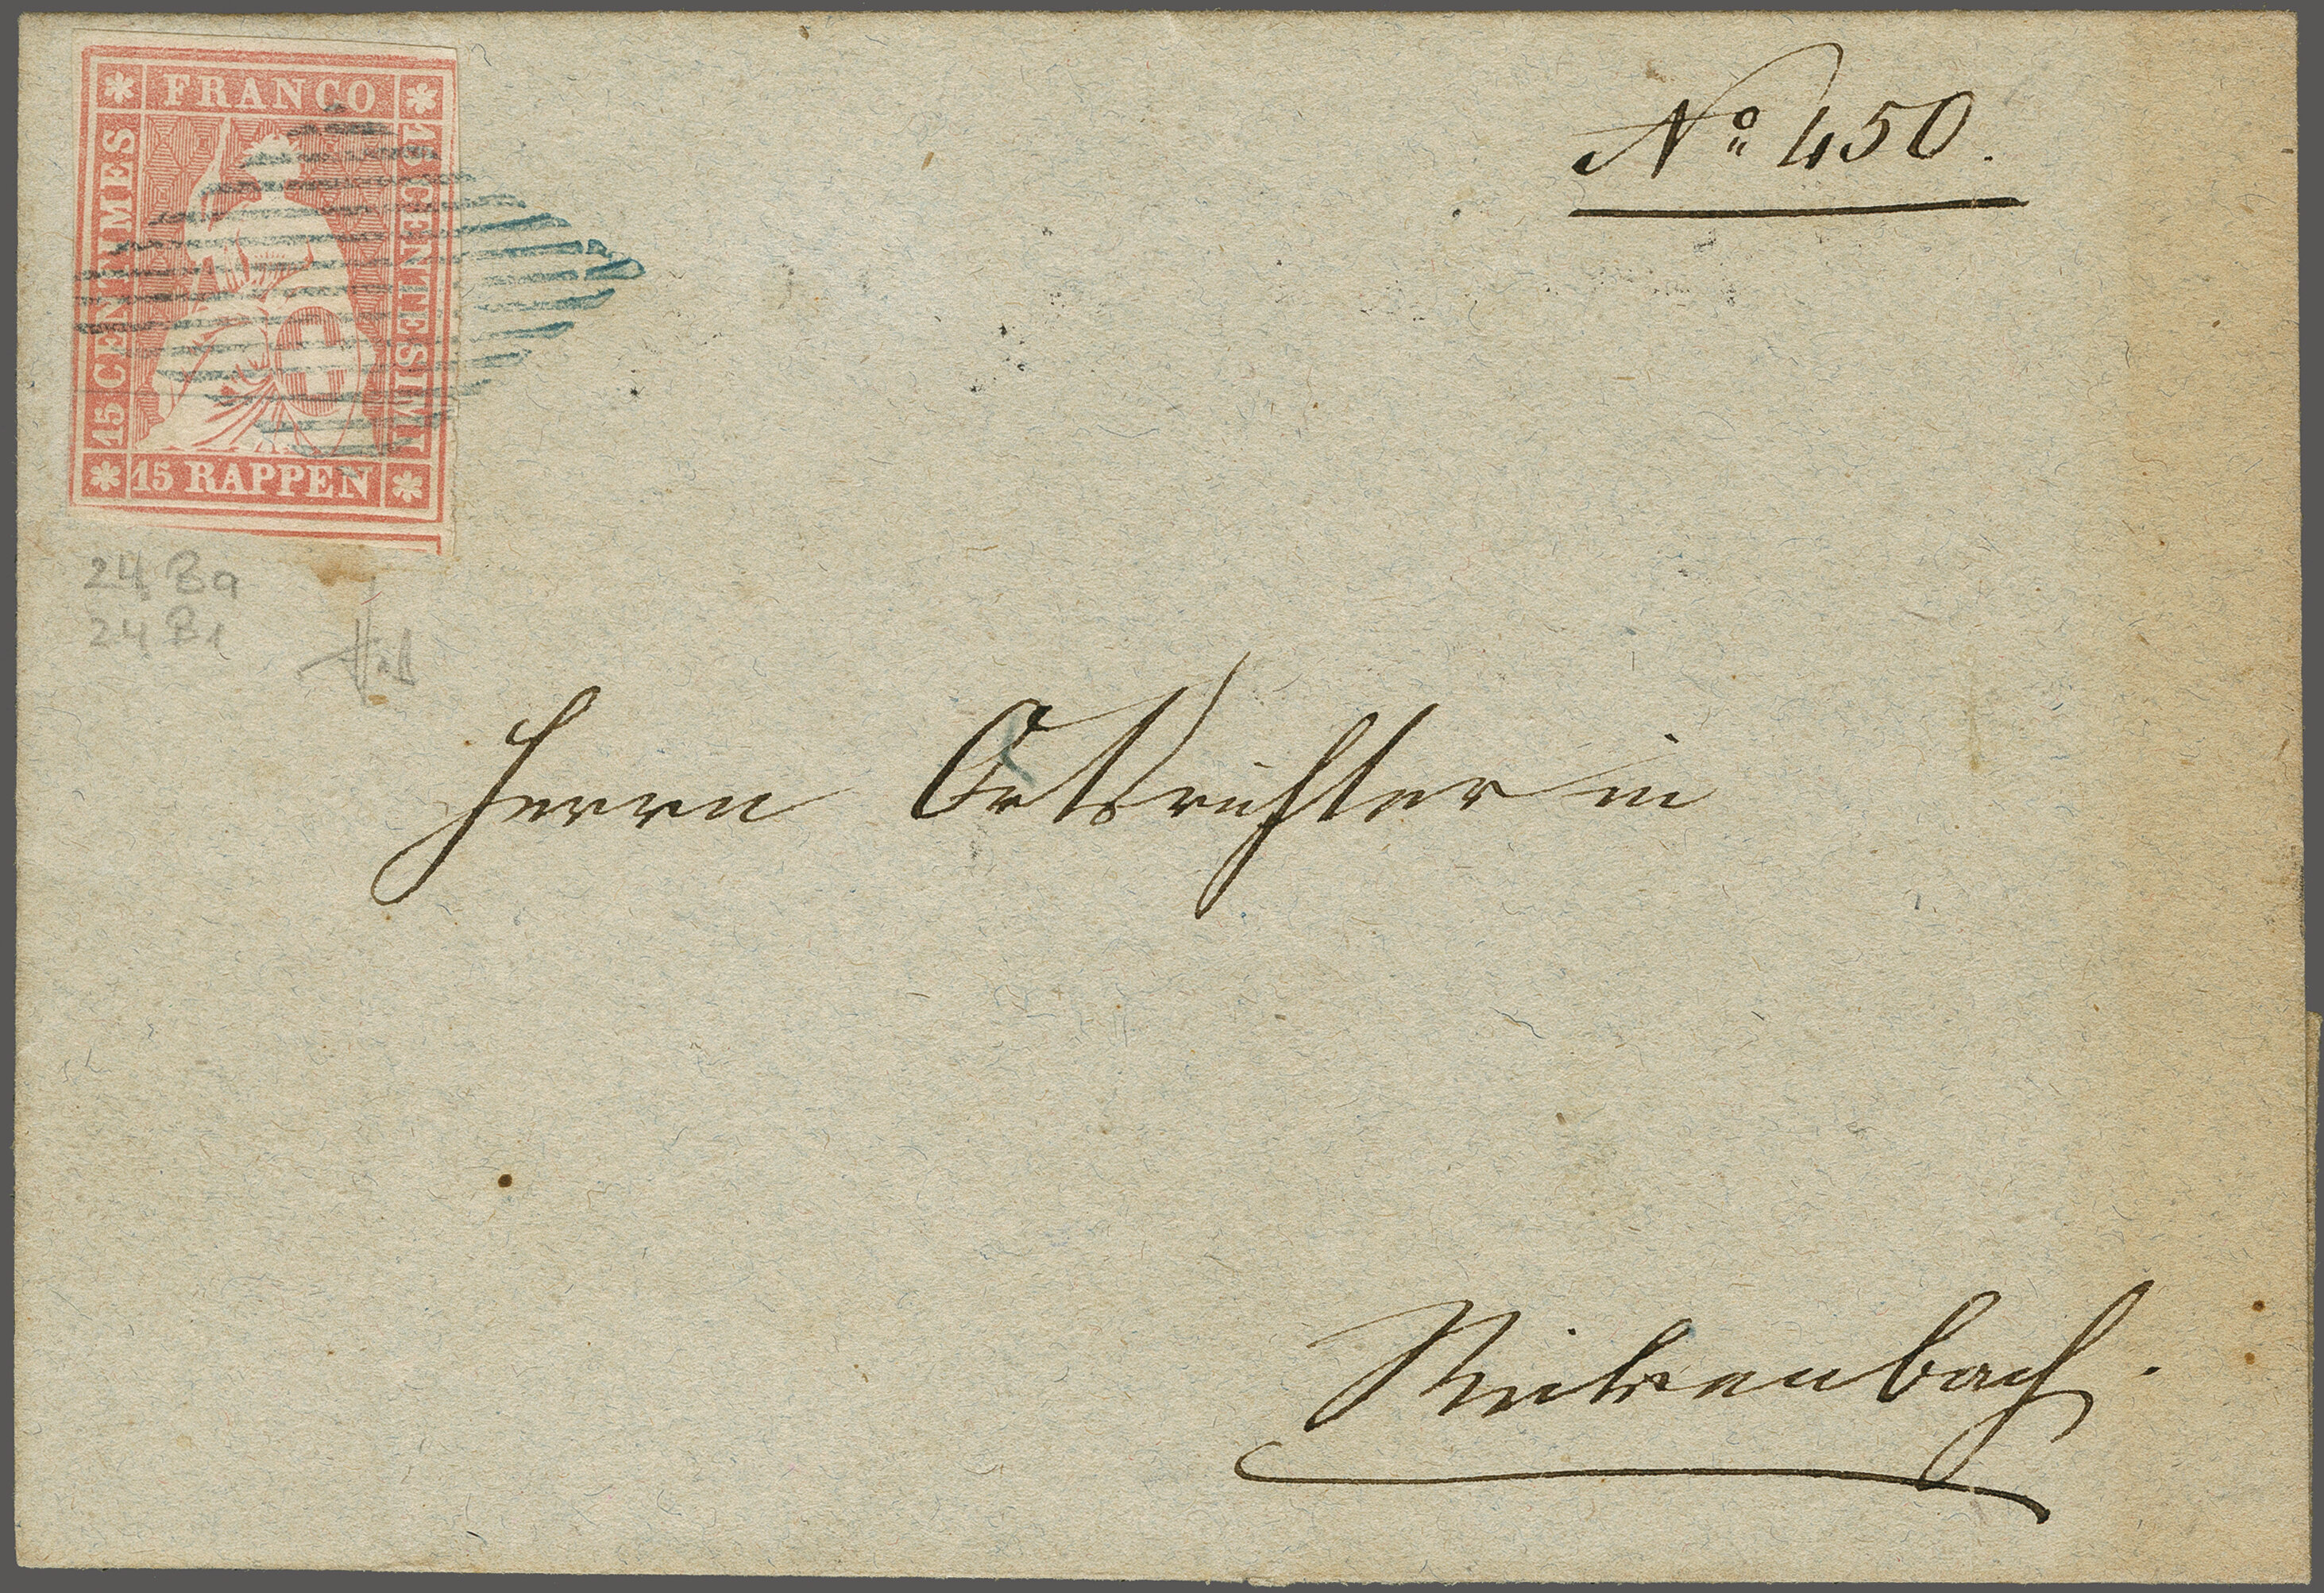 FRANCO
15 CENTIMES
15 CENTESIMI
15 RAPPEN
No 450.
24 Ba
24 B1
Herrn Ortsrichter in